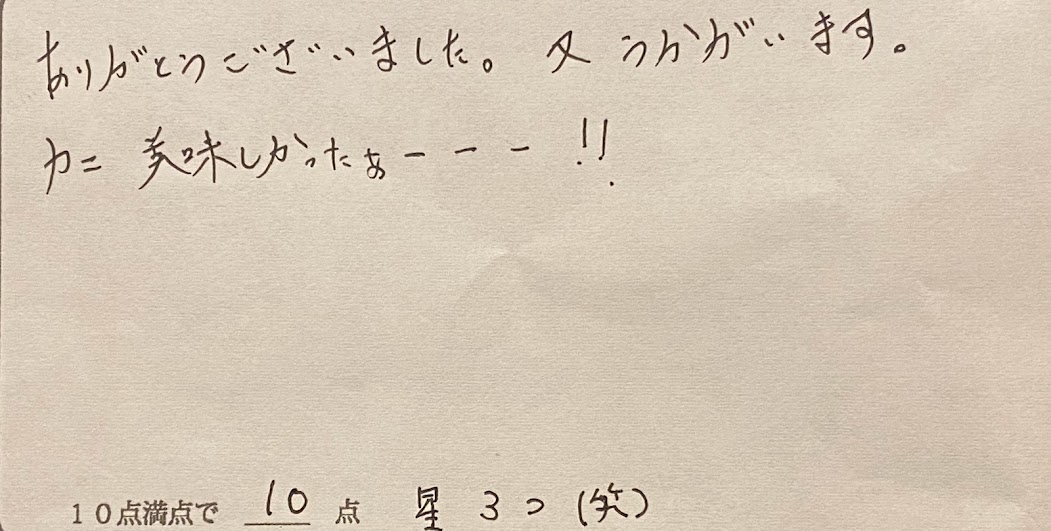 ありがとうございました。又うかがいます。
カニ 美味しかったぁーーー!!
10点満点で 10 点 星3つ(笑)